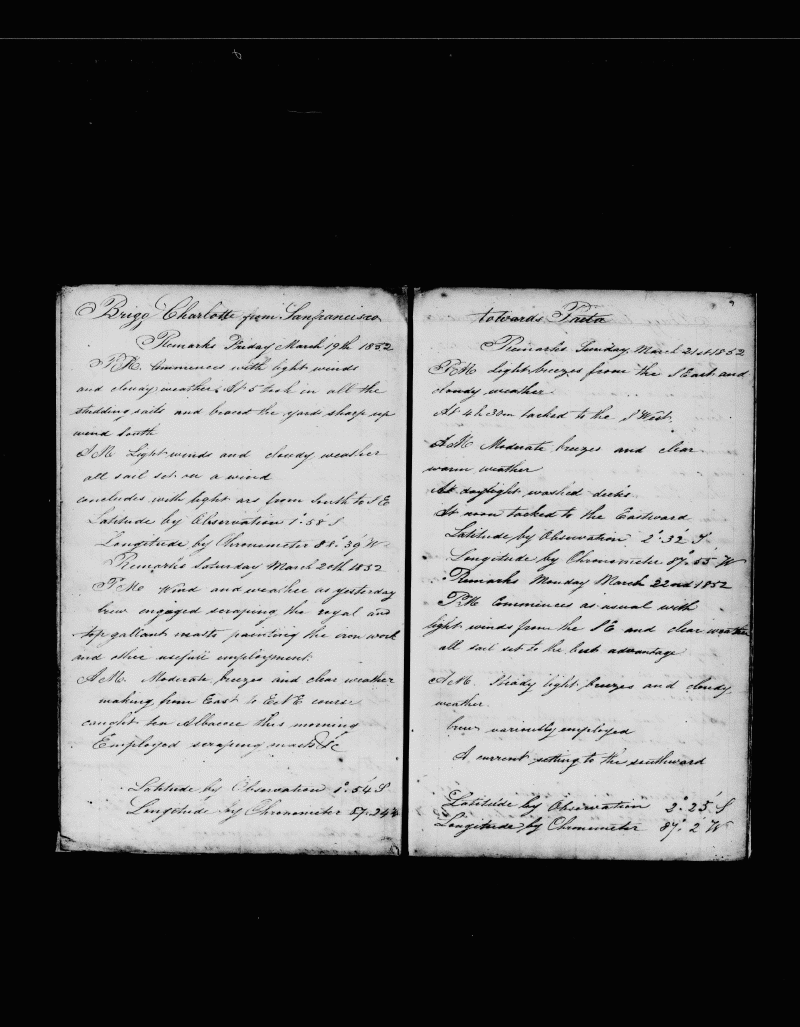 Brigg Charlotte from Sanfrancisco
Remarks Friday March 19th 1852
P.M. Commences with light winds
and cloudy weather, At 5 took in all the
studding sails and braced the yards sharp up
wind South
A M Light winds and cloudy weather
all sail set on a wind
concludes with light ars from South to S E
Latitude by Observation 1°.58 S
Longitude by Chronometer 88°.39 W
Remarks Saturday March 20th 1852
P M Wind and weather as yesterday
Crew engaged scraping the royal and
top gallant masts painting the iron work
and other usefull employment.
A M. Moderate breezes and clear weather
making from East to ENE course
caught ten Albacore this morning
Employed scraping masts &c
Latitude by Observation 1°.54 S
Longitude by Chronometer 87.24
towards Paita
Remarks Sunday March 21st 1852
P M Light breezes from the S East and
cloudy weather
At 4h 30m tacked to the S West.
A M Moderate breezes and clear
warm weather
At daylight washed decks
At noon tacked to the Eastward
Latitude by Observation 2°.32 S
Longitude by Chronometer 87°.55 W
Remarks Monday March 22nd 1852
P M Commences as usual with
light winds from the S E and clear weather
all sail set to the best advantage
A M. Steady light breezes and cloudy
weather.
Crew variously employed
A current setting to the southward
Latitude by Observation 2°.25 S
Longitude by Chronometer 87°.2 W